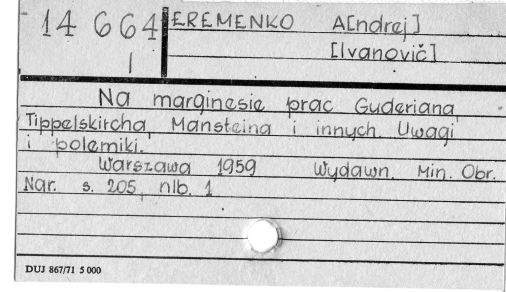 14 664 EREMENKO A[ndrej]
I [Ivanovič]
Na marginesie prac Guderiana,
Tippelskircha, Mansteina i innych. Uwagi
i polemiki.
Warszawa 1959 Wydawn. Min. Obr.
Nar. s. 205, nlb. 1
DUJ 867/71 5 000